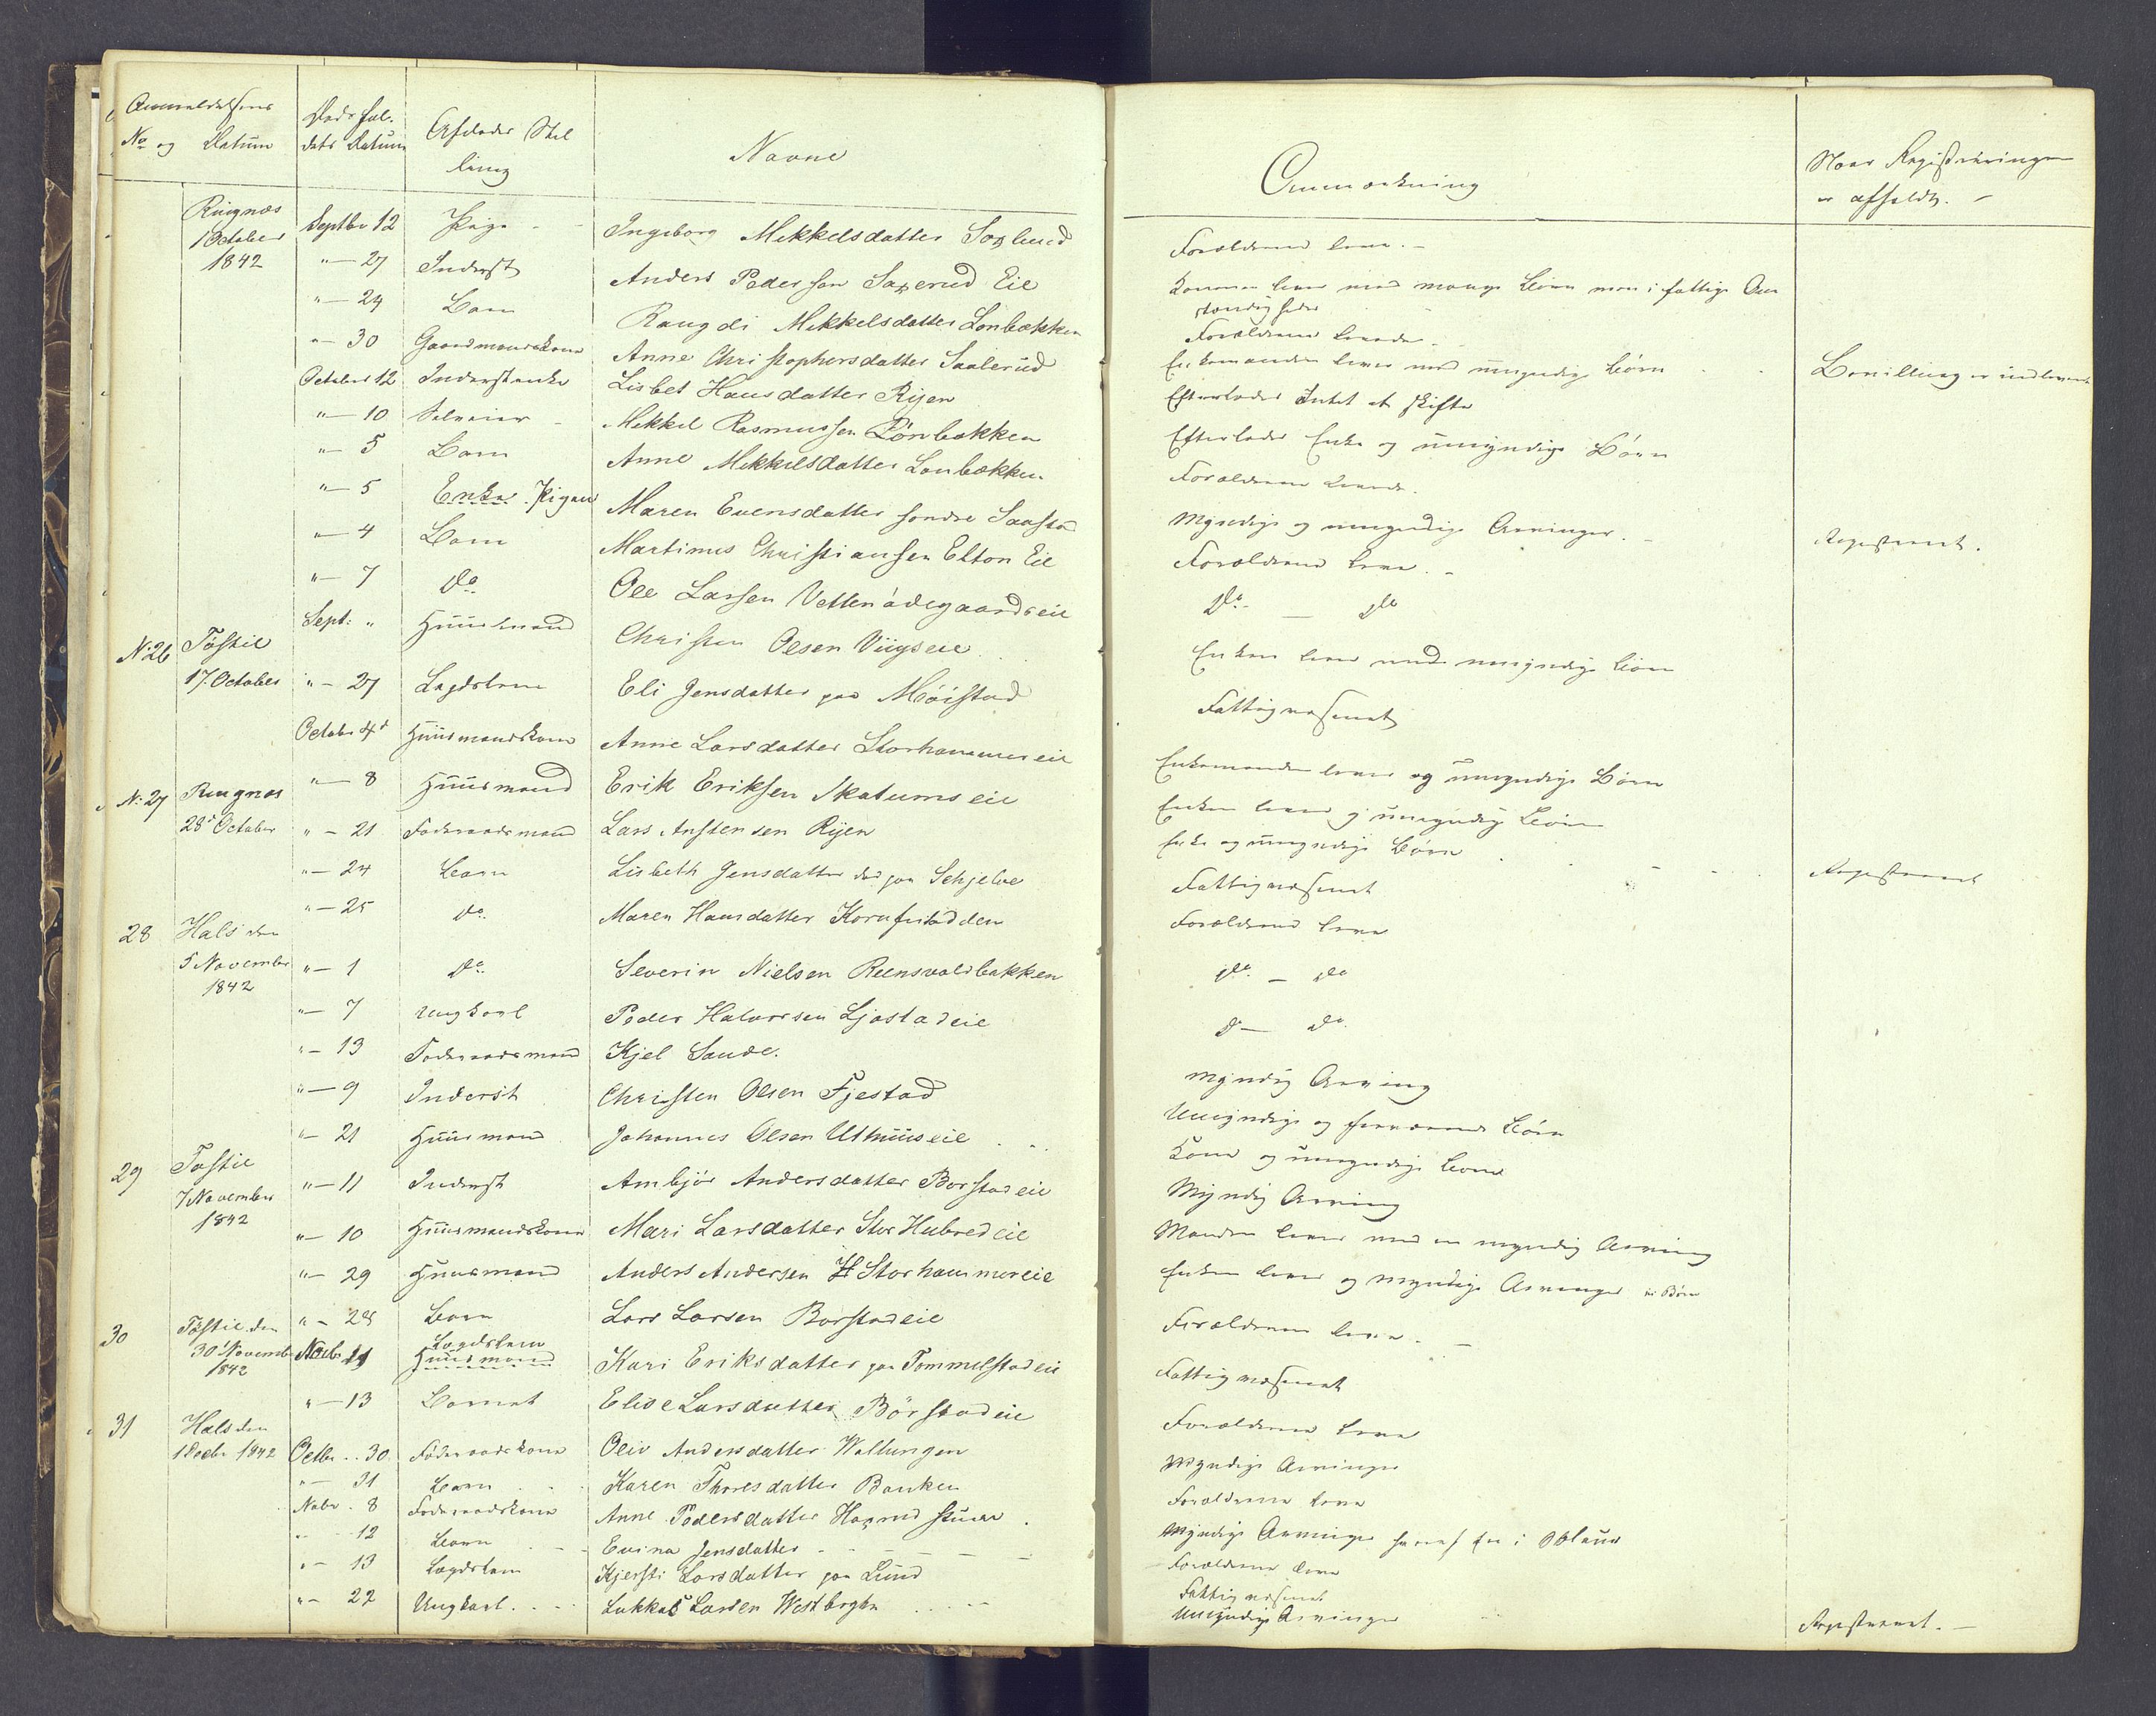 Anmeldelsens No og Datum | Dødsfaldets Datum | Afdødes Stilling | Navne | Anmærkning | Naar Registreringen er afholdt. -
Ringnæs 1 October 1842 | Septbr 12 | Pige | Ingeborg Mikkelsdatter Saxlund | Forældrene leve. -
"— 27 | Inderst | Anders Pedersen Saxerud Eie | Konen lever med mange Børn men i fattige Omstændigheder
"— 24 | Barn | Rangdi Mikkelsdatter Lonbækken | Forældrene levende.
"— 30 | Gaardmandskone | Anne Christophersdatter Saalerud | Enkemanden lever med umyndige Børn | Bevilling er indleveret
October 12 | Inderstenke | Lisbet Hansdatter Rijen | Efterlader Intet at skifte
"— 10 | Selveier | Mikkel Rasmussen Lönbækken | Efterlader Enke og umyndige Börn
"— 5 | Barn | Anne Mikkelsdatter Lonbækken | Forældrene levende.
"— 5 | Enke. Pigen | Maren Evensdatter søndre Saastad | Myndige og umyndige Arvinger. | Registreret.
"— 4 | Barn | Martinus Christiansen Elton Eie | Forældrene leve. -
"— 7 | Do | Ole Larsen Vettenödegaardseie | Do — do
Sept: " | Huusmand | Christen Olsen Viigseie | Enken lever med umyndige Børn
N: 26 | Töftie 17. October | "— 27 | Lægdslem | Eli Jensdatter paa Möistad | Fattigvæsenet
Octobr 4d | Huusmandskone | Anne Larsdatter Storhammereie | Enkemanden lever og umyndige Børn
N: 27 | Ringnæs 28d October | "— 8 | Huusmand | Erik Eriksen Skatumseie | Enken lever og umyndige Børn
"— 21 | Föderaadsmand | Lars Anstensen Rijen | Enke og umyndige Børn | Registreret
"— 24 | Barn | Lisbeth Jensdatter død paa Schjelve | Fattigvæsenet
"— 25 | do | Maren Hansdatter | Forældrene leve
28 | Hals den 5 November 1842 | "— 1 | Do | Severin Nielsen Reensvoldbakken | do — do
"— 7 | Ungkarl | Peder Halvorsen Ljøstadeie | D— do.
"— 13 | Föderaadsmand | Kjel Sande. | Myndig Arving
"— 9 | Inderst | Christen Olsen Fjestad | Umyndige og fraværende Børn
"— 21 | Huusmand | Johannes Olsen Uthuuseie | Kone og umyndige Børn
29 | Töftie 7 November 1842 | "— 11 | Inderst | Ambjör Andersdatter Borstadeie | Myndig Arving
"— 10 | Huusmandskone | Mari Larsdatter Stor Hubredeie | Manden lever med en myndig Arving
"— 29 | Huusmand | Anders Andersen Storhammereie | Enken lever og myndige Arvinger
30 | Töftie den 30 November 1842 | "— 28 | Barn | Lars Larsen Borstadeie | Forældrene leve. -
Novbr 11 | Lægdslem Huusmand | Kari Eriksdatter paa Tommelstadeie | Fattigvæsenet
"— 13 | Barnet | Elise Larsdatter Börstadeie | Forældrene leve
31 | Hals den 1 Decbr 1842 | Octbr .. 30 | Föderaadskone | Oliv Andersdatter Weltungen | Myndige Arvinger
"— 31 | Barn | Karen Thoresdatter Banken | Forældrene leve
Novbr. 8 | Föderaadskone | Anne Pedersdatter | Myndige Arvinger
"— 12 | Barn | Evina Jensdatter | Forældrene leve
"— 13 | Lægdslem | Kjersti Larsdatter paa Lund | Fattigvæsenet
"— 22 | Ungkarl | Lukkas Larsen Westbergen | Umyndige Arvinger | Registreret. -